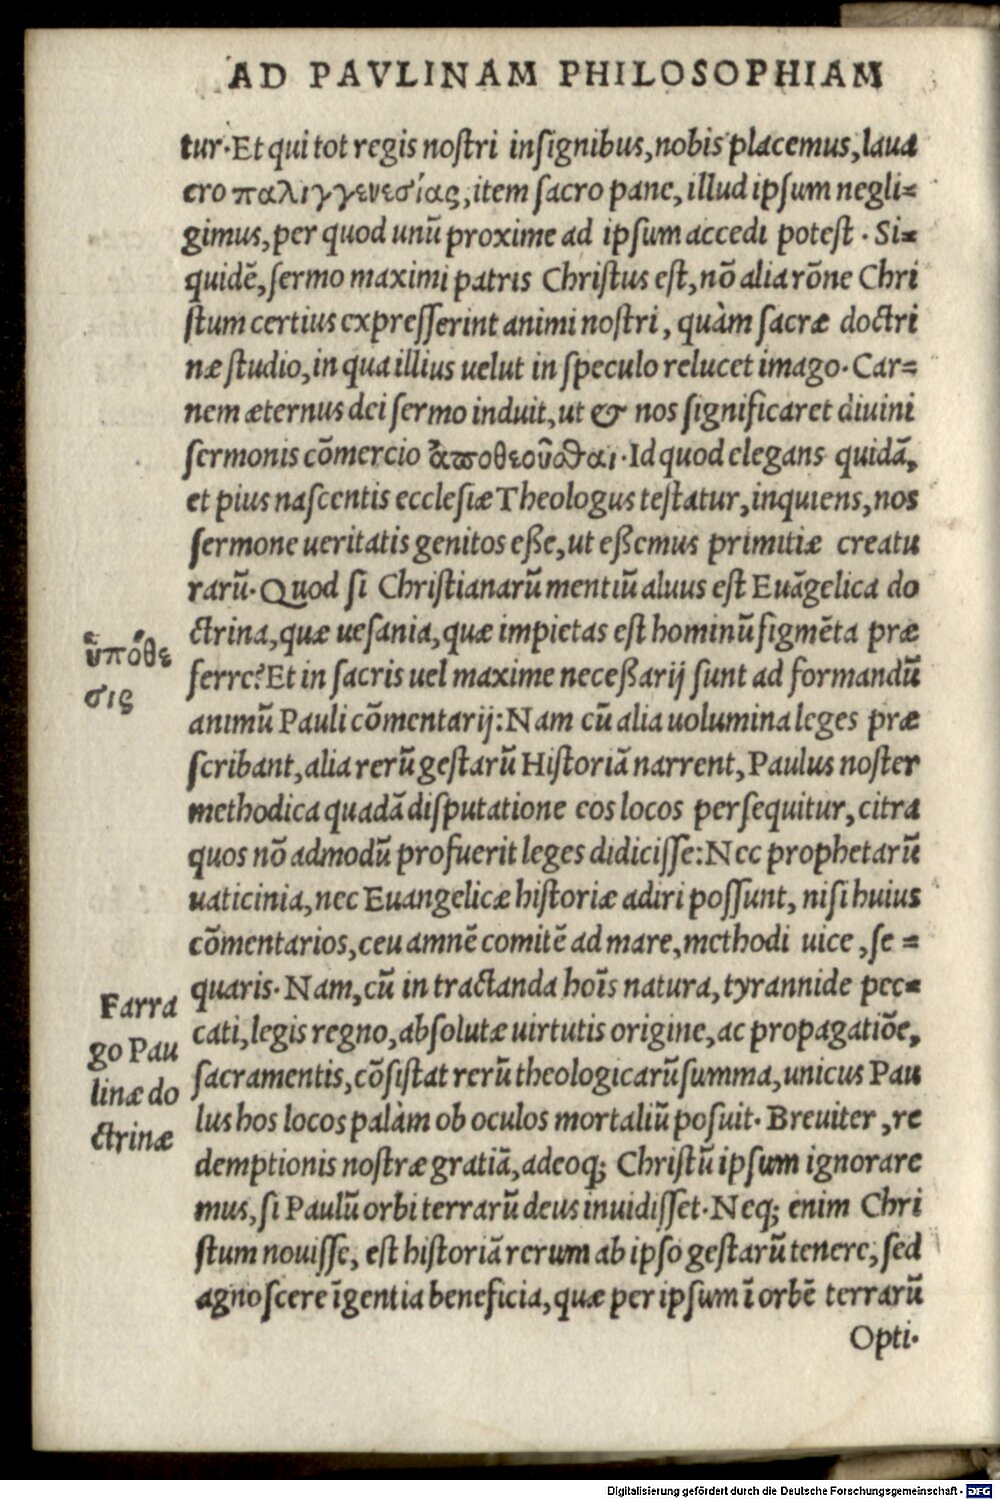 AD PAVLINAM PHILOSOPHIAM
tur. Et qui tot regis noſtri inſignibus, nobis placemus, laua
cro παλιγγενεσίας, item ſacro pane, illud ipſum negli=
gimus, per quod unū proxime ad ipſum accedi poteſt. Si=
quidē, ſermo maximi patris Chriſtus eſt, nō alia rōne Chri
ſtum certius expreſſerint animi noſtri, quàm ſacræ doctri
næ ſtudio, in qua illius uelut in ſpeculo relucet imago. Car=
nem æternus dei ſermo induit, ut & nos ſignificaret diuini
ſermonis cōmercio ἀποθεοῦσθαι. Id quod elegans quidā,
et pius naſcentis eccleſiæ Theologus teſtatur, inquiens, nos
ſermone ueritatis genitos eße, ut eßemus primitiæ creatu
rarū. Quod ſi Chriſtianarū mentiū aluus eſt Euāgelica do
ctrina, quæ ueſania, quæ impietas eſt hominū figmēta præ
ferre? Et in ſacris uel maxime neceßarij ſunt ad formandū
ὑπόθε
σις
animū Pauli cōmentarij: Nam cū alia uolumina leges præ
ſcribant, alia rerū geſtarū Hiſtoriā narrent, Paulus noſter
methodica quadā diſputatione eos locos perſequitur, citra
quos nō admodū profuerit leges didiciſſe: Nec prophetarū
uaticinia, nec Euangelicæ hiſtoriæ adiri poſſunt, niſi huius
cōmentarios, ceu amnē comitē ad mare, methodi uice, ſe=
quaris. Nam, cū in tractanda hoīs natura, tyrannide pec=
Farra
go Pau
linæ do
ctrinæ
cati, legis regno, abſolutæ uirtutis origine, ac propagatiōe,
ſacramentis, cōſiſtat rerū theologicarū ſumma, unicus Pau
lus hos locos palàm ob oculos mortaliū poſuit. Breuiter, re
demptionis noſtræ gratiā, adeoq; Chriſtū ipſum ignorare
mus, ſi Paulū orbi terrarū deus inuidiſſet. Neq; enim Chri
ſtum nouiſſe, eſt hiſtoriā rerum ab ipſo geſtarū tenere, ſed
agnoſcere īgentia beneficia, quæ per ipſum ī orbē terrarū
Opti.
Digitalisierung gefördert durch die Deutsche Forschungsgemeinschaft - DFG